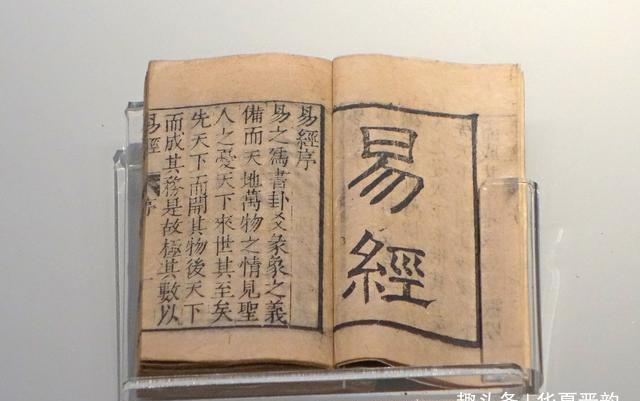 易經
易經序
易之爲書卦爻彖象之義
備而天地萬物之情見聖
人之憂天下來世其至矣
先天下而開其物後天下
而成其務是故極其數以
易經 序
趣头条 | 华夏晋韵